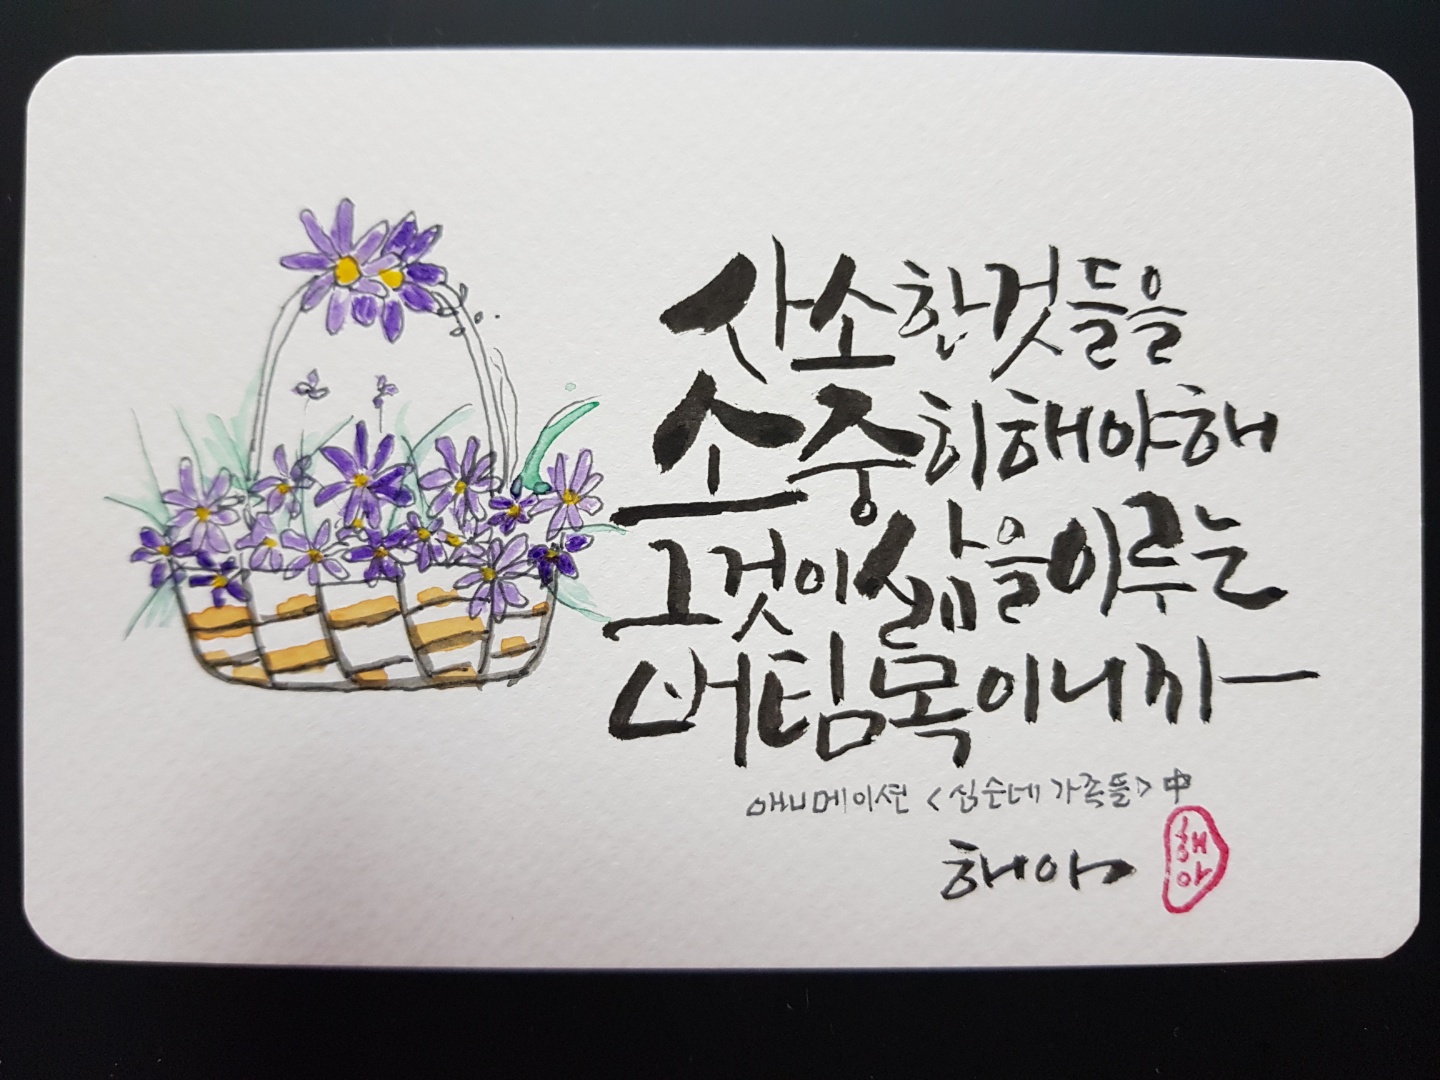 사소한것들을
소중히해야해
그것이삶을이루는
버팀목이니까
애니메이션 <심슨네 가족들> 中
해아
해아